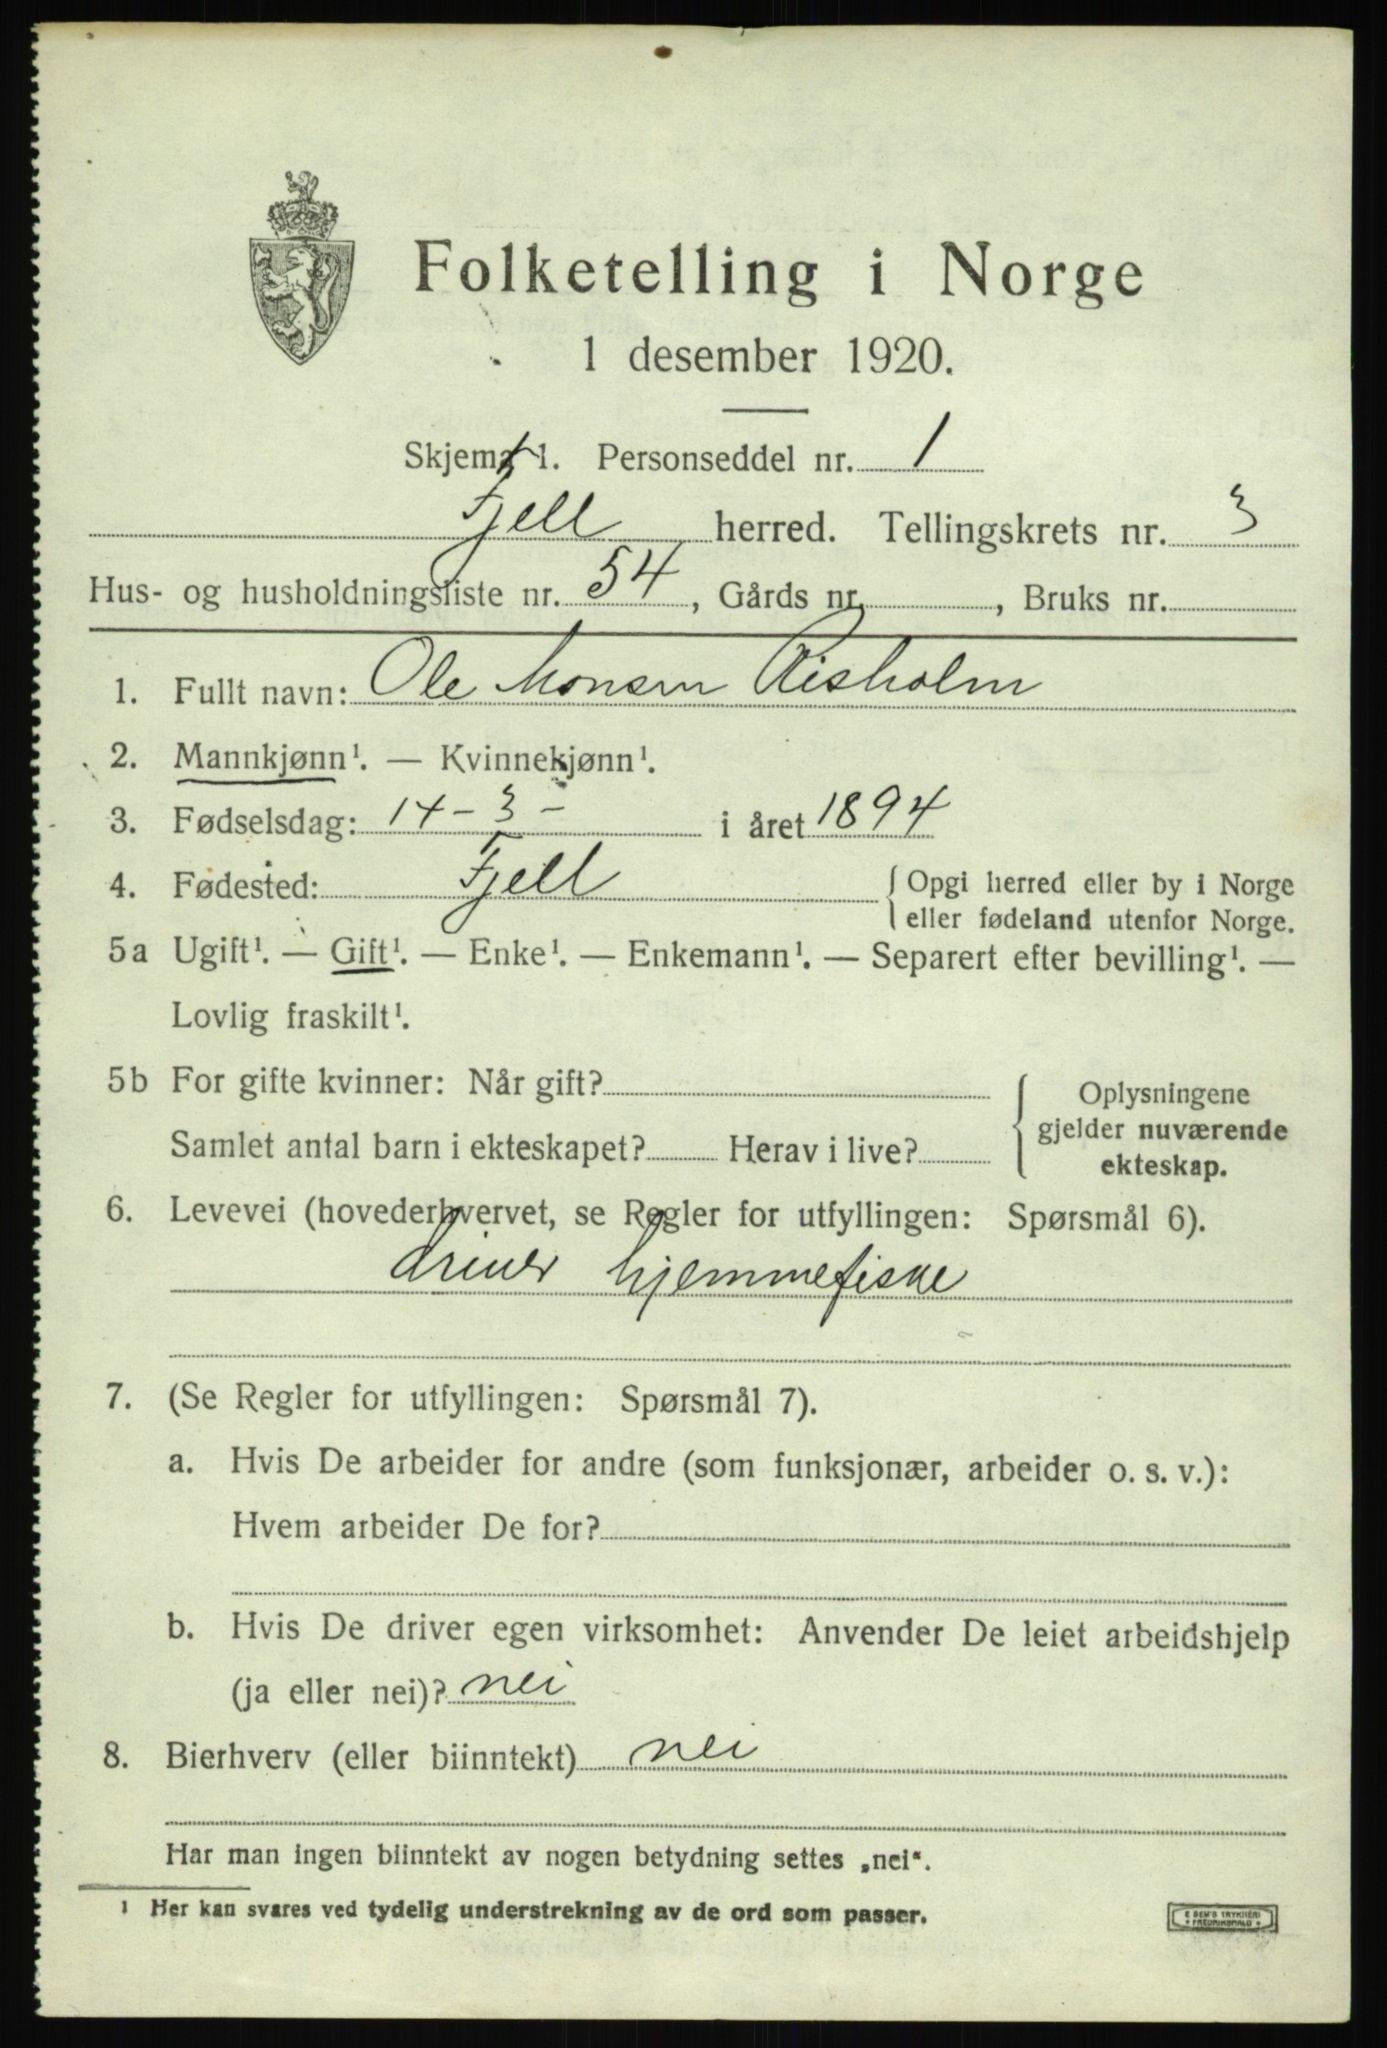 Folketelling i Norge
1 desember 1920.
Skjema 1. Personseddel nr. 1
Fjell herred. Tellingskrets nr. 3
Hus- og husholdningsliste nr. 54, Gårds nr. , Bruks nr.
1. Fullt navn: Ole Monsen Risholm
2. Mannkjønn¹. — Kvinnekjønn¹.
3. Fødselsdag: 14 - 3 - i året 1894
4. Fødested: Fjell { Opgi herred eller by i Norge
eller fødeland utenfor Norge.
5a Ugift¹. — Gift¹. — Enke¹. — Enkemann¹. — Separert efter bevilling¹. —
Lovlig fraskilt¹.
5b For gifte kvinner: Når gift? { Oplysningene
gjelder nuværende
Samlet antal barn i ekteskapet? Herav i live? ekteskap.
6. Levevei (hovederhvervet, se Regler for utfyllingen: Spørsmål 6).
driver hjemmefiske
7. (Se Regler for utfyllingen: Spørsmål 7).
a. Hvis De arbeider for andre (som funksjonær, arbeider o. s. v.):
Hvem arbeider De for?
b. Hvis De driver egen virksomhet: Anvender De leiet arbeidshjelp
(ja eller nei)? nei
8. Bierhverv (eller biinntekt) nei
Har man ingen biinntekt av nogen betydning settes „nei“.
¹ Her kan svares ved tydelig understrekning av de ord som passer.
E SEM'S TRYKKERI
FREDRIKSHALD